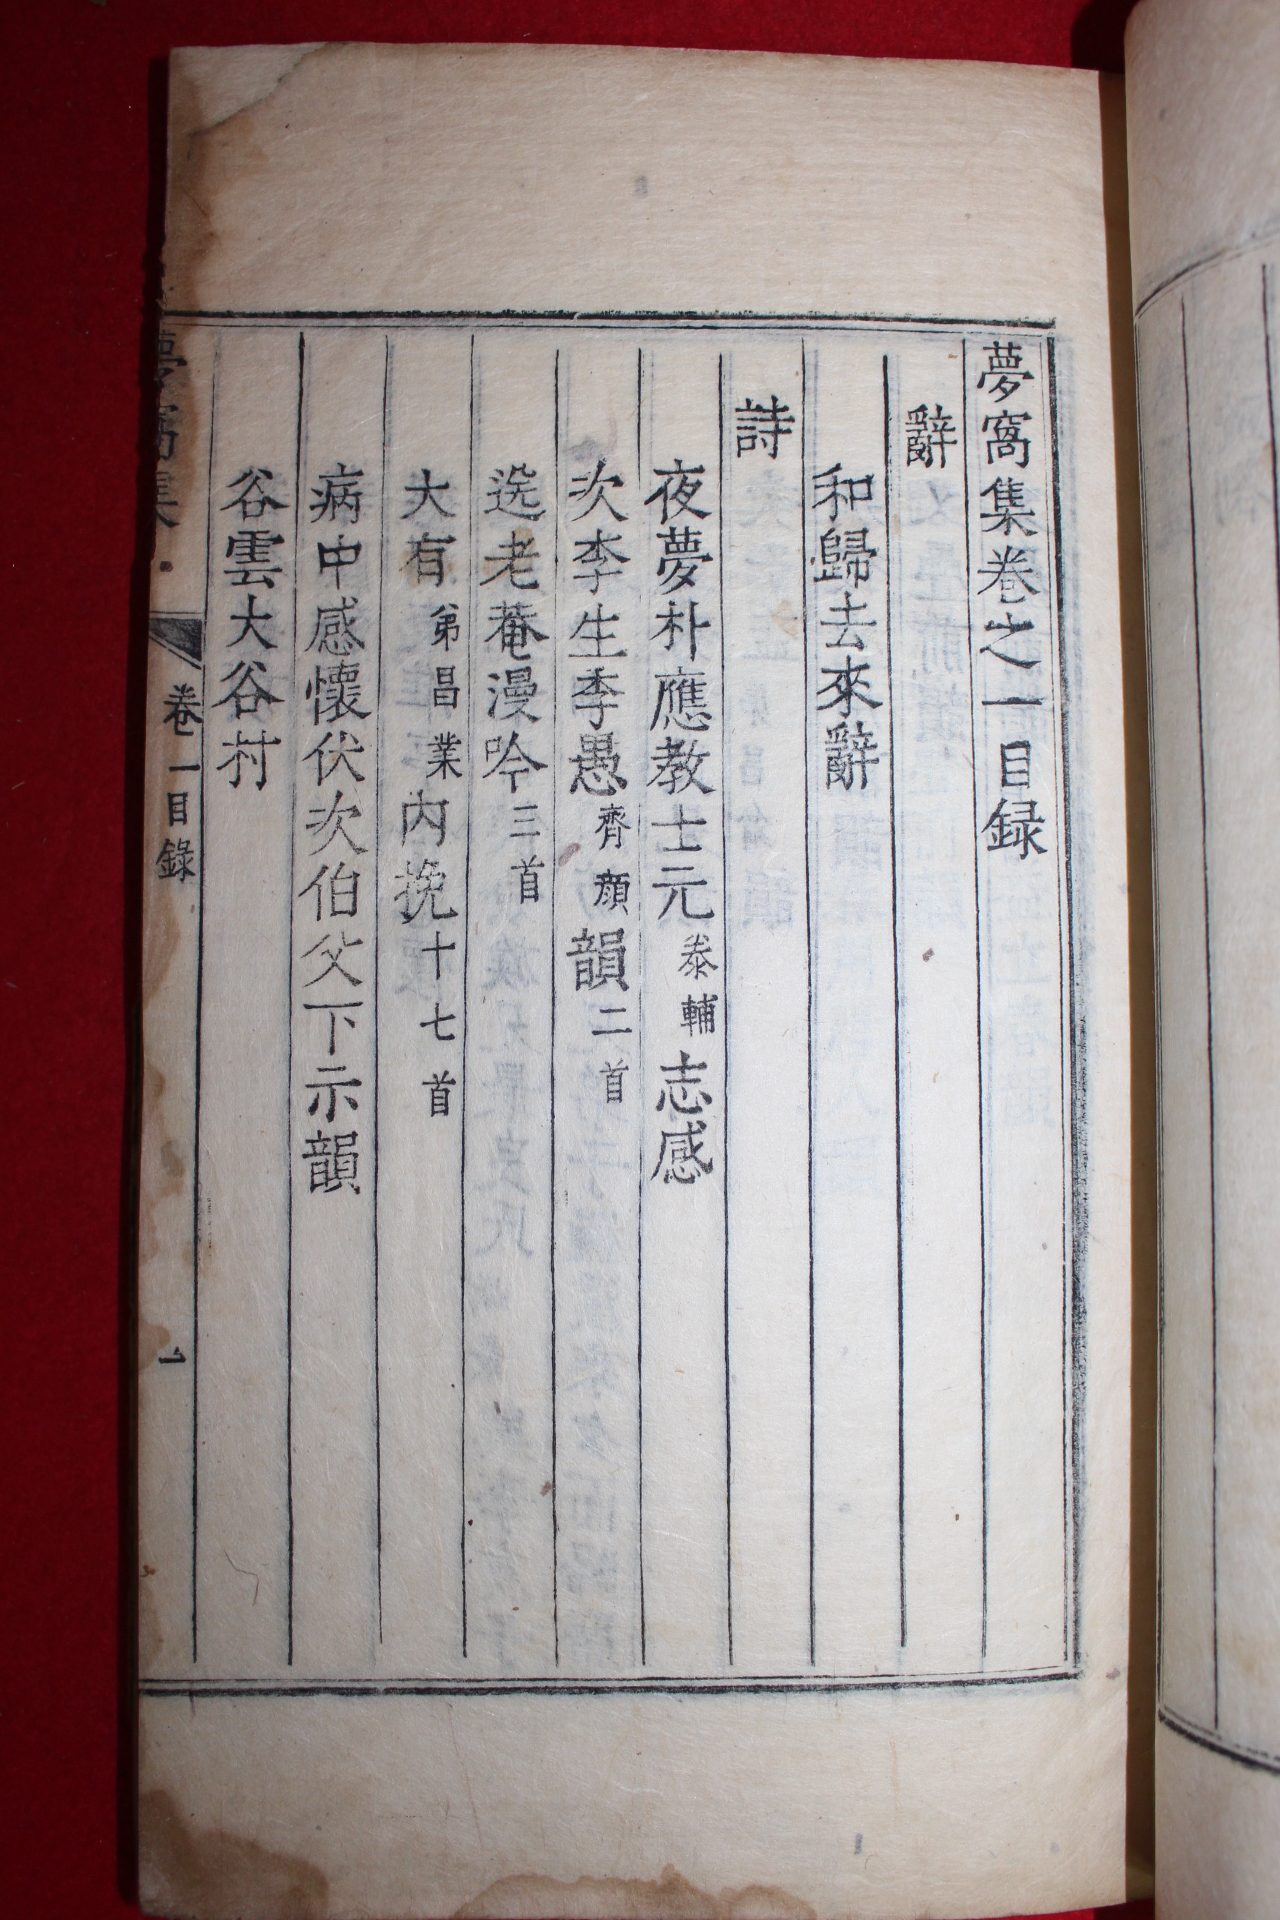 夢窩集卷之一目録
辭
和歸去來辭
詩
夜夢朴應教士元泰輔志感
次李生季愚齊顔韻二首
选老菴漫吟三首
大有弟昌業內挽十七首
病中感懷伏次伯父下示韻
谷雲大谷村
夢窩集
卷一目錄
一